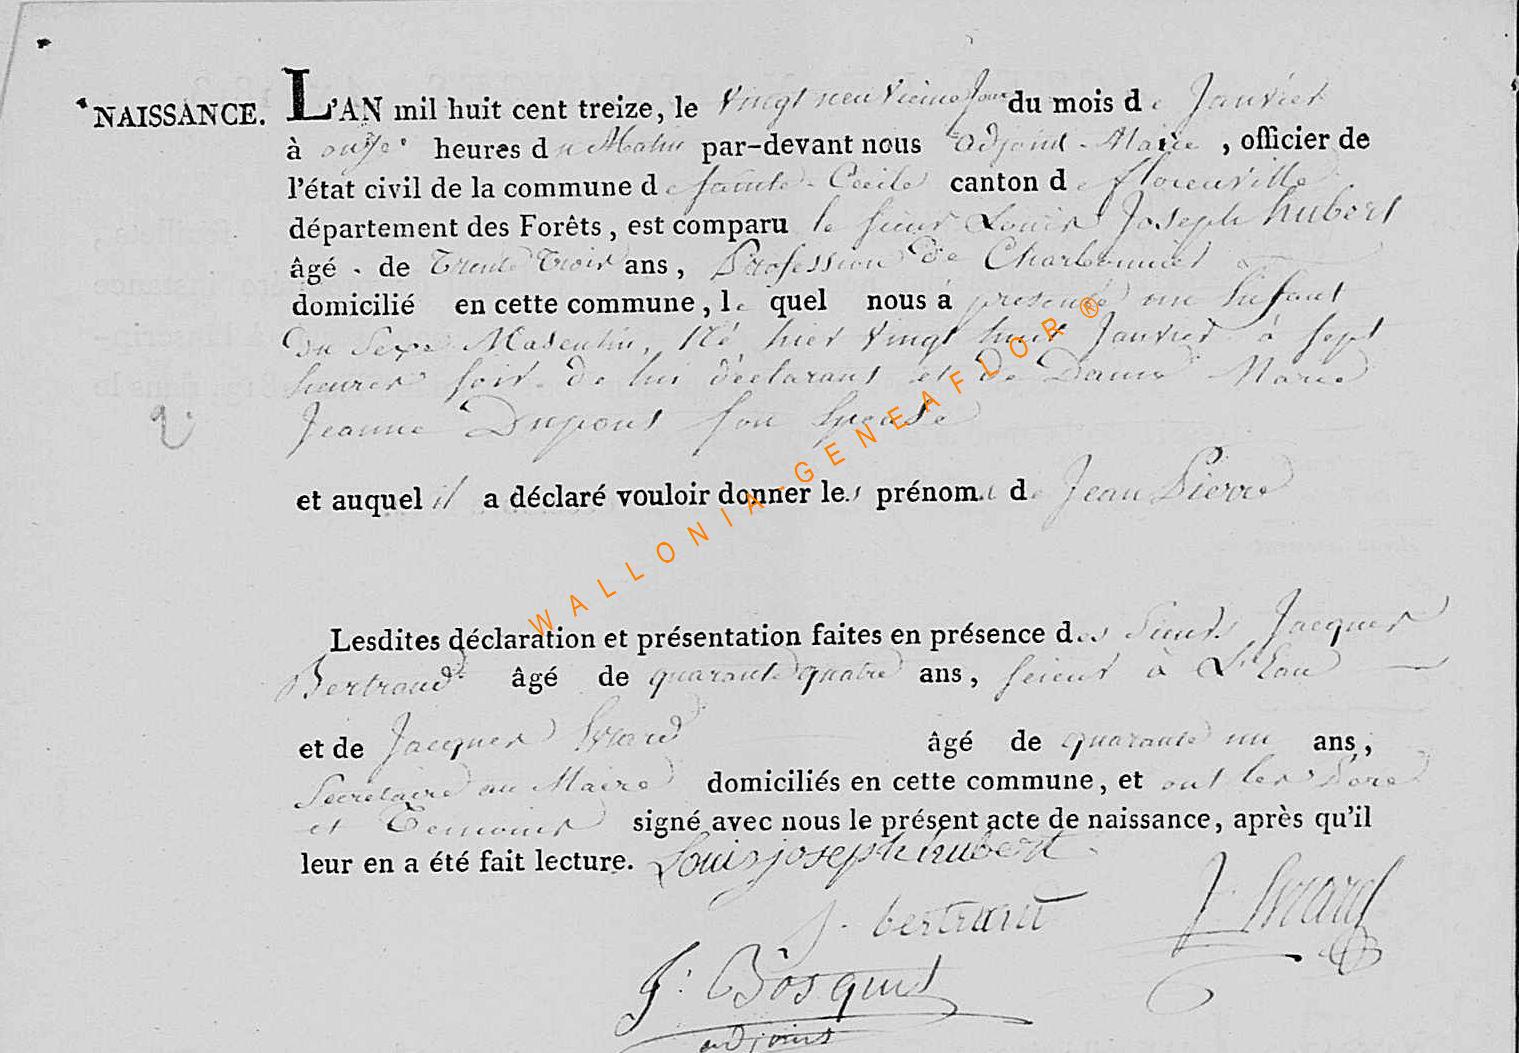 NAISSANCE. L'AN mil huit cent treize, le vingt neuvieme jour du mois de Janvier
à onze heures du Matin par-devant nous adjoint-Maire, officier de
l'état civil de la commune de sainte-Cecile canton de florenville
département des Forêts, est comparu le sieur Louis Joseph hubert
âgé de Trente Trois ans, Profession de Charbonnier
domicilié en cette commune, le quel nous a presenté un Enfant
Du Sexe Masculin, Né hier vingt huit Janvier à sept
heures soir de lui déclarant et De Dame Marie
Jeanne Dupont son Epouse
et auquel il a déclaré vouloir donner les prénoms de Jean Pierre
WALLONIA-GENEAFLOR®
Lesdites déclaration et présentation faites en présence des Sieurs Jacques
Bertrand âgé de quarante quatre ans, scieur à L'Eau
et de Jacques âgé de quarante un ans,
Secretaire au Maire domiciliés en cette commune, et ont les Pere
et Temoins signé avec nous le présent acte de naissance, après qu'il
leur en a été fait lecture. Louis joseph hubert
J. bertrand J.
J. Bosquet
adjoint